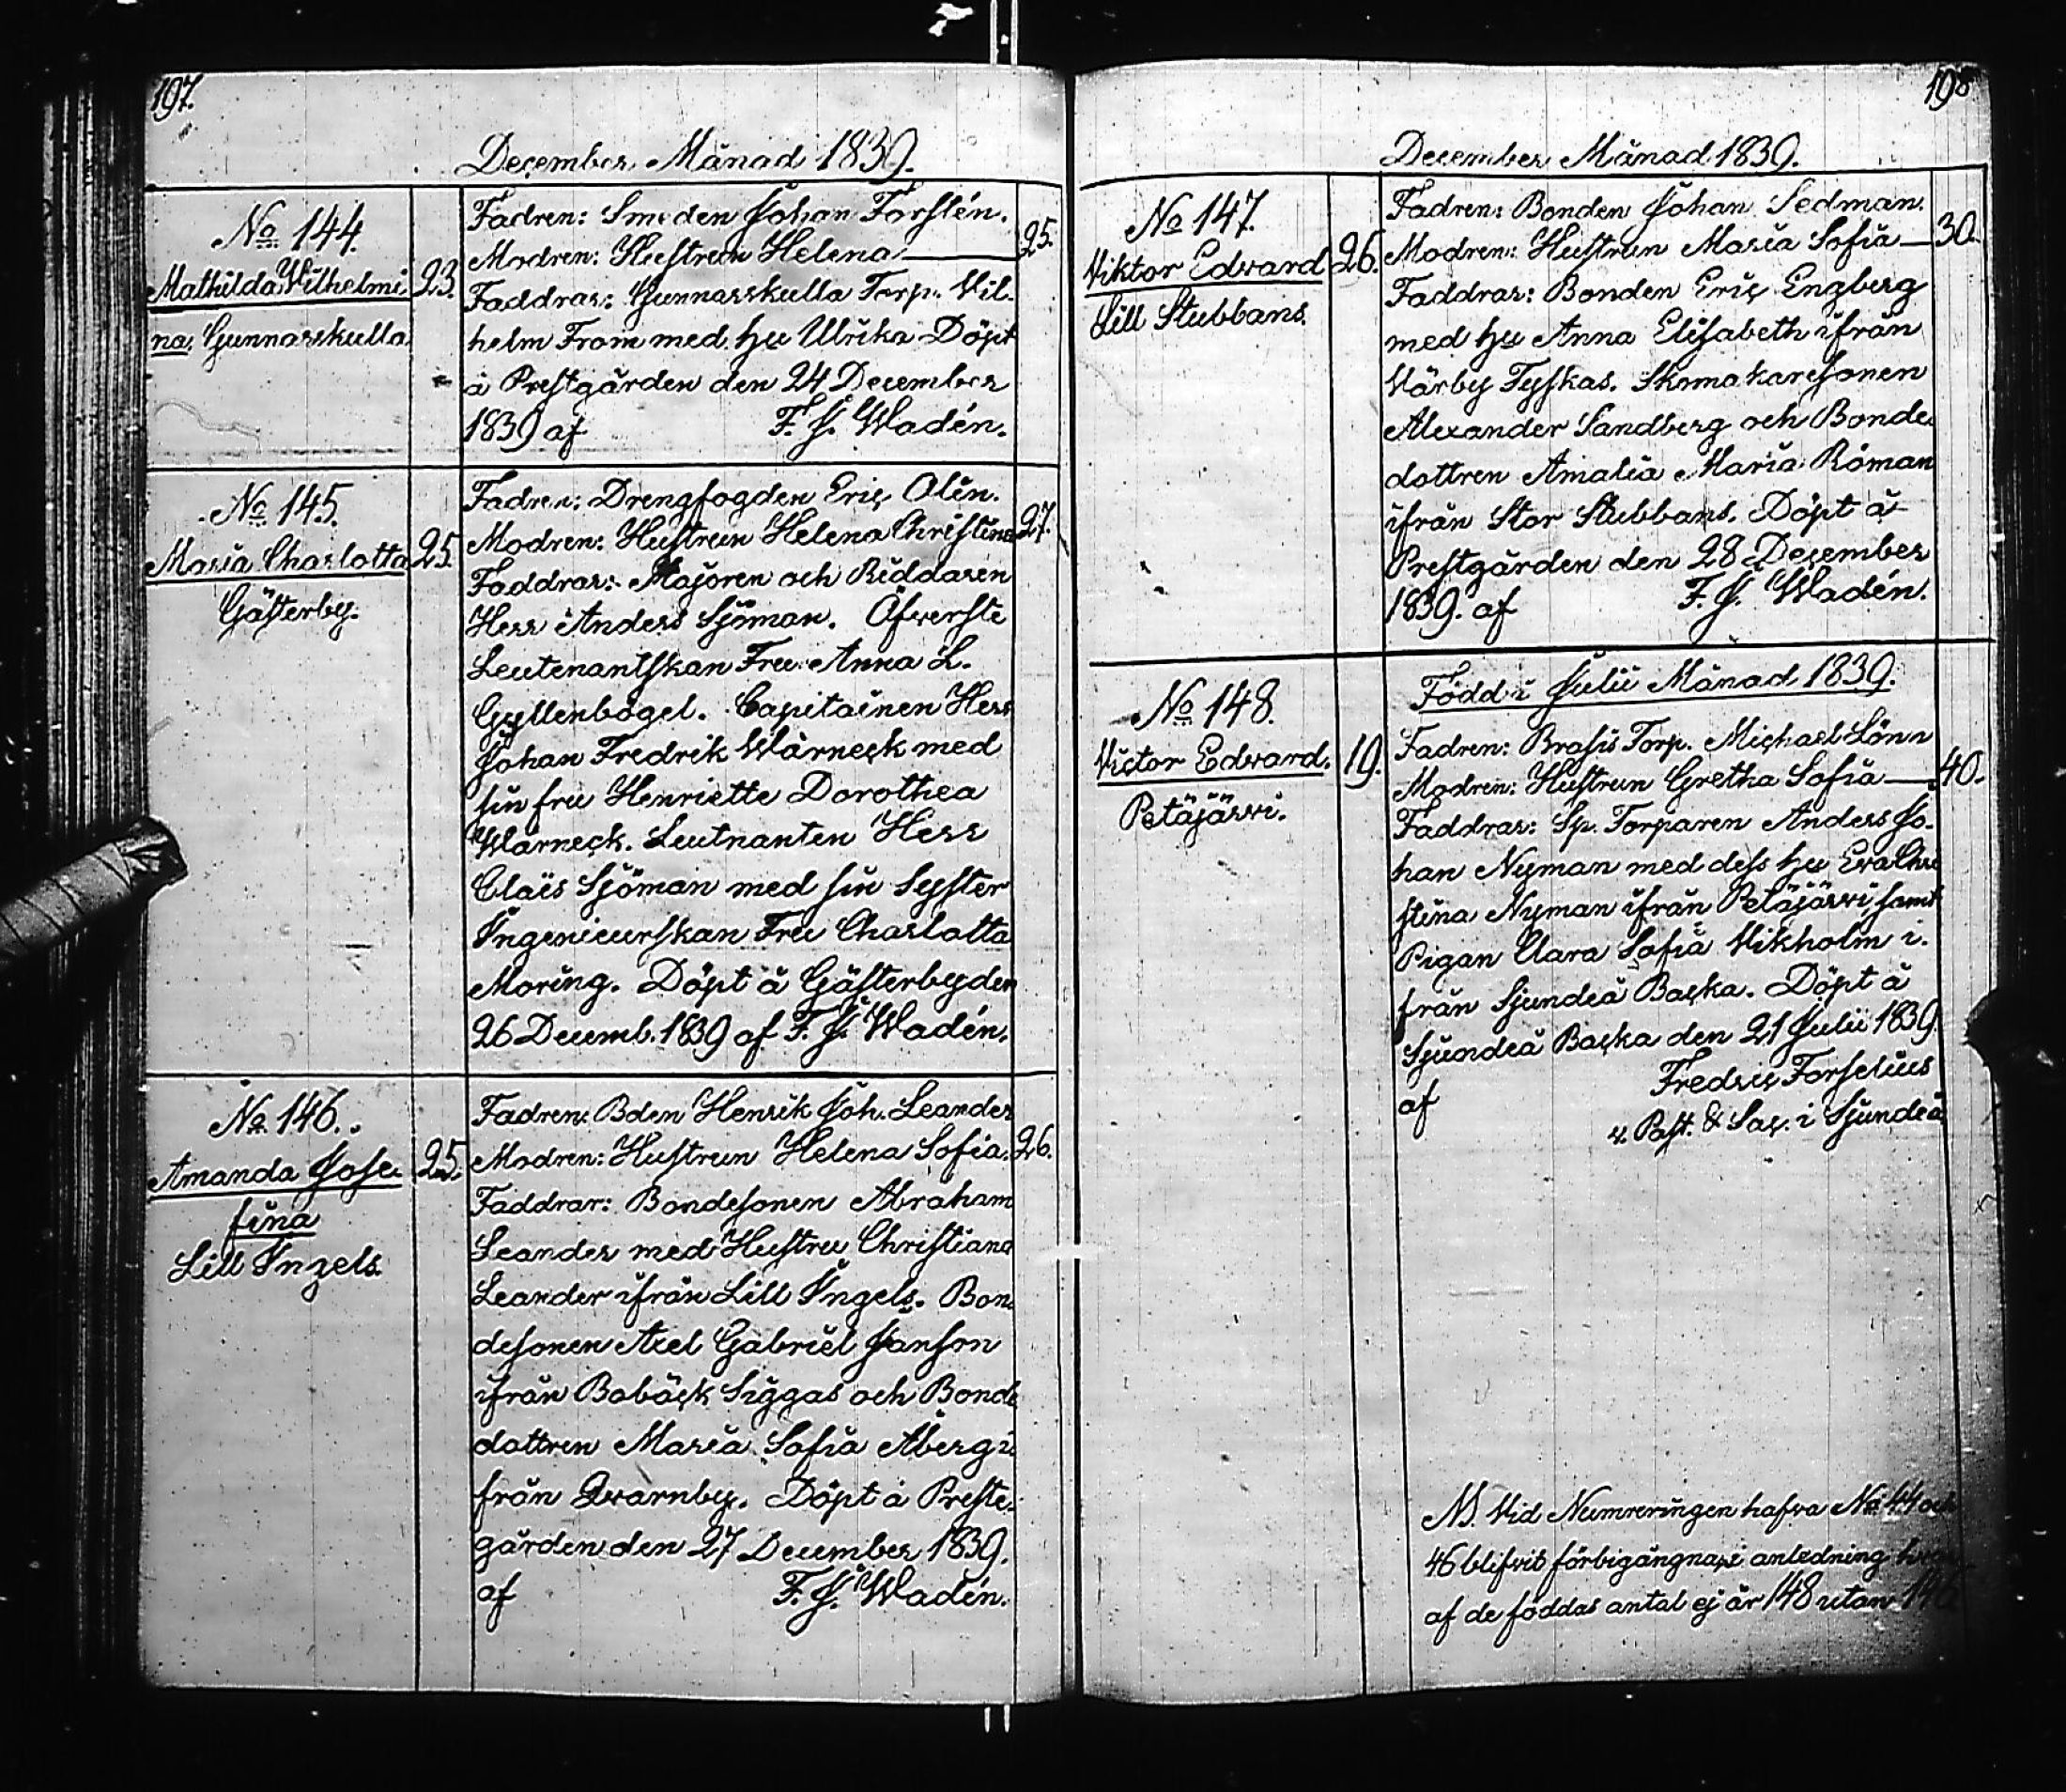 197.
December Månad 1839.
No 144.
Mathilda Wilhelmi
na. Gunnarskulla
23.
Fadren: Smeden Johan Forslén.
Modren: Hustrun Helena
25.
Faddrar: Gunnarskulla Torp. Wil-
helm From med hu Ulrika Döpt
å Prestgården den 24 December
1839 af F. J. Wadén.
No 145.
Maria Charlotta
Gästerby.
25.
Fadren: Drengfogden Eric Olin.
Modren: Hustrun Helena Christina
27.
Faddrar: Majoren och Riddaren
Herr Anders Sjöman. Öfverste
Leutenantskan Fru Anna L.
Gyllenbögel. Capitainen Herr
Johan Fredrik Wärneck med
sin fru Henriette Dorothea
Wärneck. Leutnanten Herr
Claës Sjöman med sin Syster
Ingenieurskan Fru Charlotta
Moring. Döpt å Gästerby den
26 Decemb. 1839 af F. J. Wadén.
No 146.
Amanda Jose-
fina
Lill Ingels.
25.
Fadren: Bden Henrik Joh. Leander
Modren: Hustrun Helena Sofia.
26.
Faddrar: Bondesonen Abraham
Leander med Hustru Christiana
Leander ifrån Lill Ingels. Bon-
desonen Axel Gabriel Janson
ifrån Bobäck Siggas och Bonde
dottren Maria Sofia Åberg i-
från Qvarnby. Döpt å Preste-
gården den 27 December 1839.
af F. J. Wadén.
198
December Månad 1839.
No 147.
Viktor Edvard
Lill Stubbans.
26.
Fadren: Bonden Johan Sedman.
Modren: Hustrun Maria Sofia
30.
Faddrar: Bonden Eric Engberg
med hu Anna Elisabeth ifrån
Värby Tyskas. Skomakaresonen
Alexander Sandberg och Bonde-
dottren Amalia Maria Roman
ifrån Stor Stubbans. Döpt å
Prestgården den 28 December
1839. af F. J. Wadén.
No 148.
Victor Edvard.
Petäjärvi.
19.
Född i Julii Månad 1839.
Fadren: Brasis Torp. Michael Lönn
Modren: Hustrun Gretha Sofia
40.
Faddrar: Sp. Torparen Anders Jo-
han Nyman med dess hu Eva Chri
stina Nyman ifrån Petäjärvi samt
Pigan Clara Sofia Vikholm i-
från Sjundeå Backa. Döpt å
Sjundeå Backa den 21 Julii 1839
af Fredric Forselius
v. Past. & Sac. i Sjundeå
NB. Vid Numreringen hafva No 44 och
46 blifvit förbigångna, i anledning hvar
af de föddas antal ej är 148 utan 146